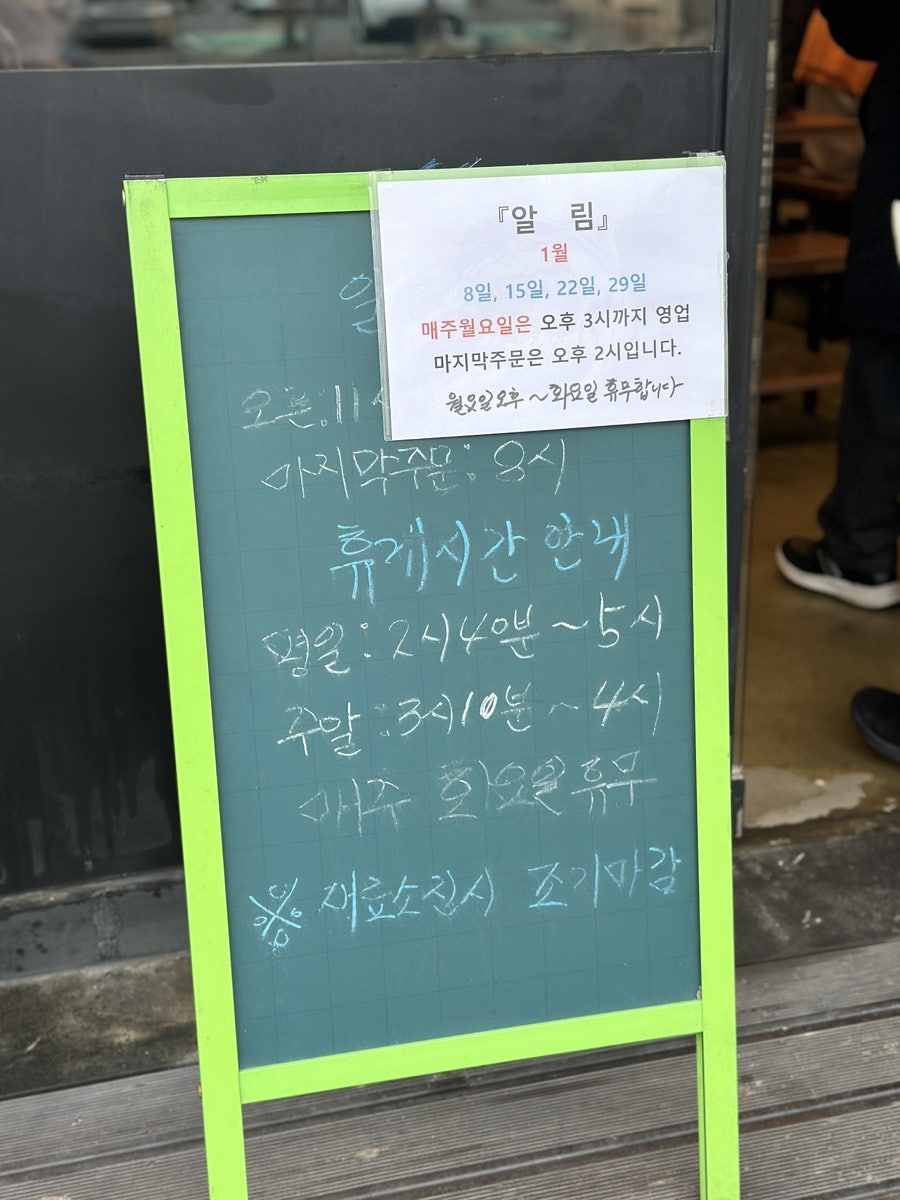 『알 림』
1월
8일, 15일, 22일, 29일
매주월요일은 오후 3시까지 영업
마지막주문은 오후 2시입니다.
월요일오후 ~ 화요일 휴무합니다
오픈:11시
마지막주문: 8시
휴게시간 안내
평일: 2시40분 ~ 5시
주말: 3시10분 ~ 4시
매주 화요일휴무
※ 재료소진시 조기마감